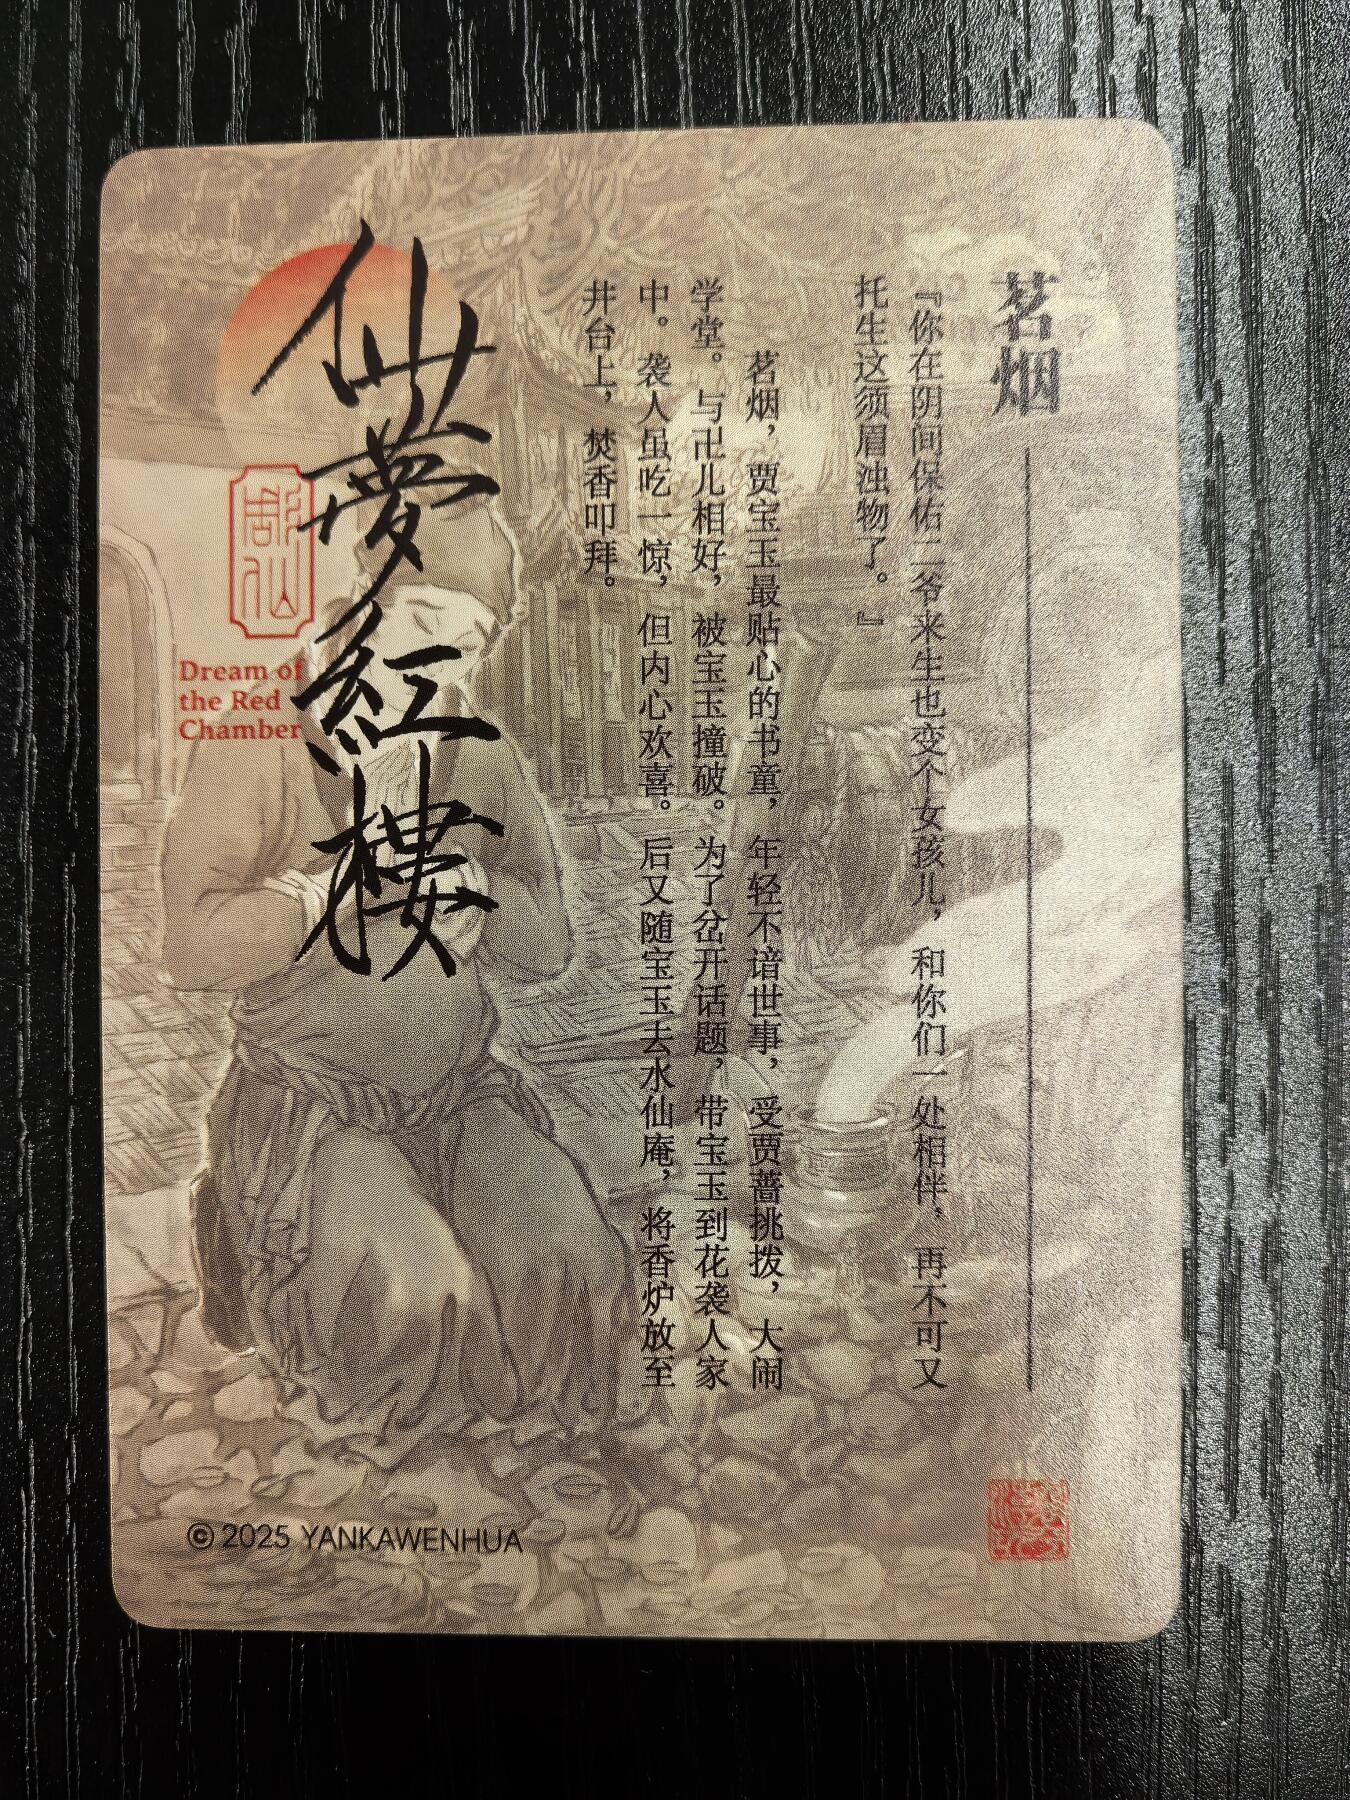 茗烟
『你在阴间保佑二爷来生也变个女孩儿，和你们一处相伴，再不可又
托生这须眉浊物了。』
茗烟，贾宝玉最贴心的书童，年轻不谙世事，受贾蔷挑拨，大闹
学堂。与卍儿相好，被宝玉撞破。为了岔开话题，带宝玉到花袭人家
中。袭人虽吃一惊，但内心欢喜。后又随宝玉去水仙庵，将香炉放至
井台上，焚香叩拜。
仙夢紅樓
Dream of
the Red
Chamber
© 2025 YANKAWENHUA